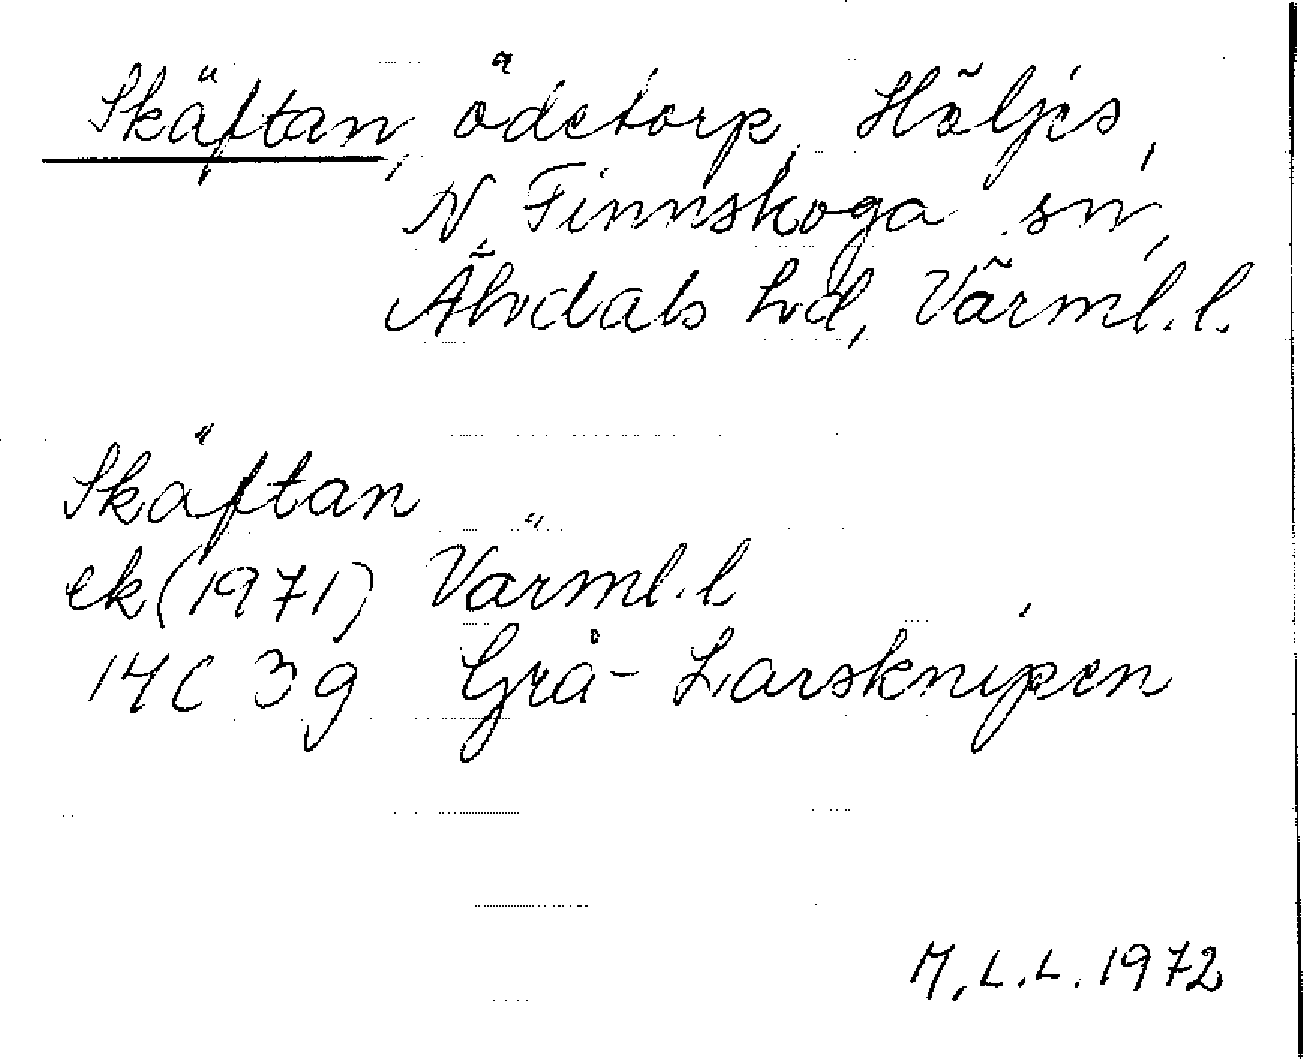 Skäftan, ödetorp, Höljes,
N. Finnskoga sn,
Älvdals hd, Värml. l.
Skäftan
ek (1971) Värml. l
14C 3g Grå-Larsknipen
M.L.L. 1972